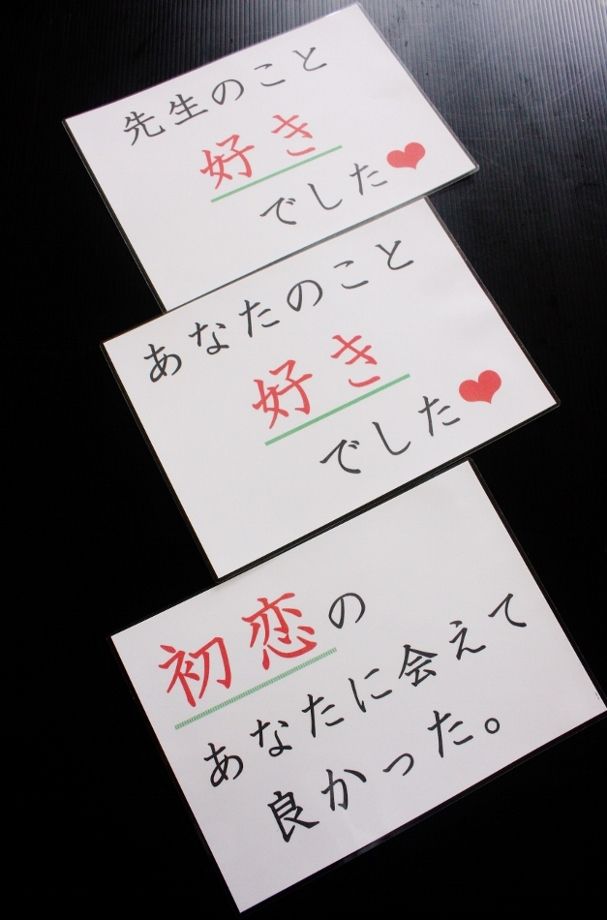 先生のこと
好き
でした❤
あなたのこと
好き
でした❤
初恋の
あなたに会えて
良かった。